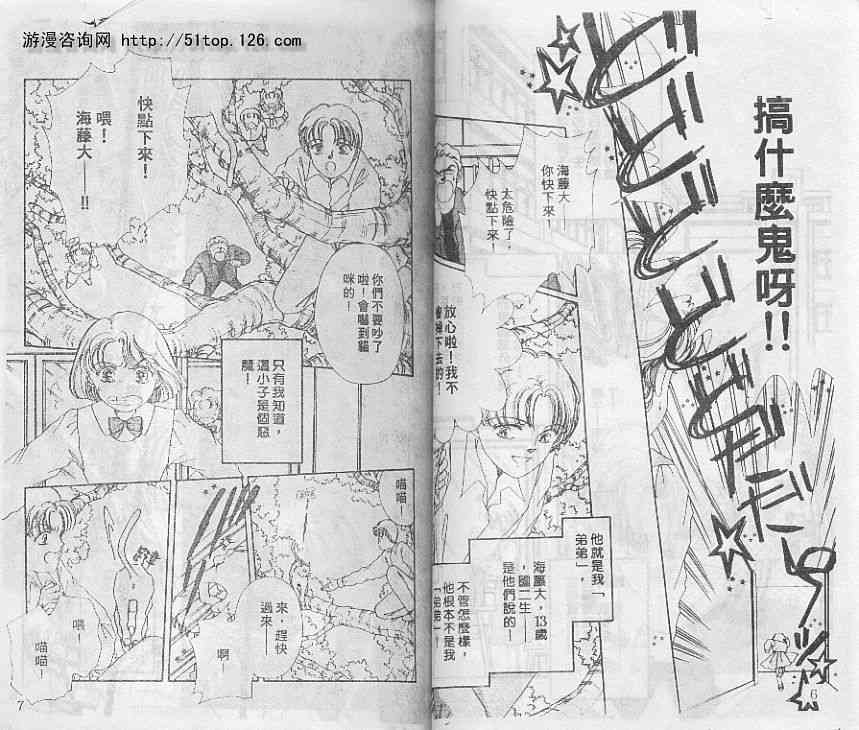 游漫咨询网 http://51top.126.com
搞什麼鬼呀!!
海藤大——
你快下來!
太危險了,
快點下來!
放心啦!我不
下去的!
他就是我「
弟弟」,
海藤大,13歲
,國二生——
是他們說的!
不管怎麼樣,
他根本不是我
「弟弟」!
6
快點下來!
喂!
海藤大——!!
你們不要吵了
啦!會嚇到貓
咪的!
只有我知道,
這小子是個惡
魔!
喵喵
來,趕快
過來—
啊!
喂!
喵喵!
7